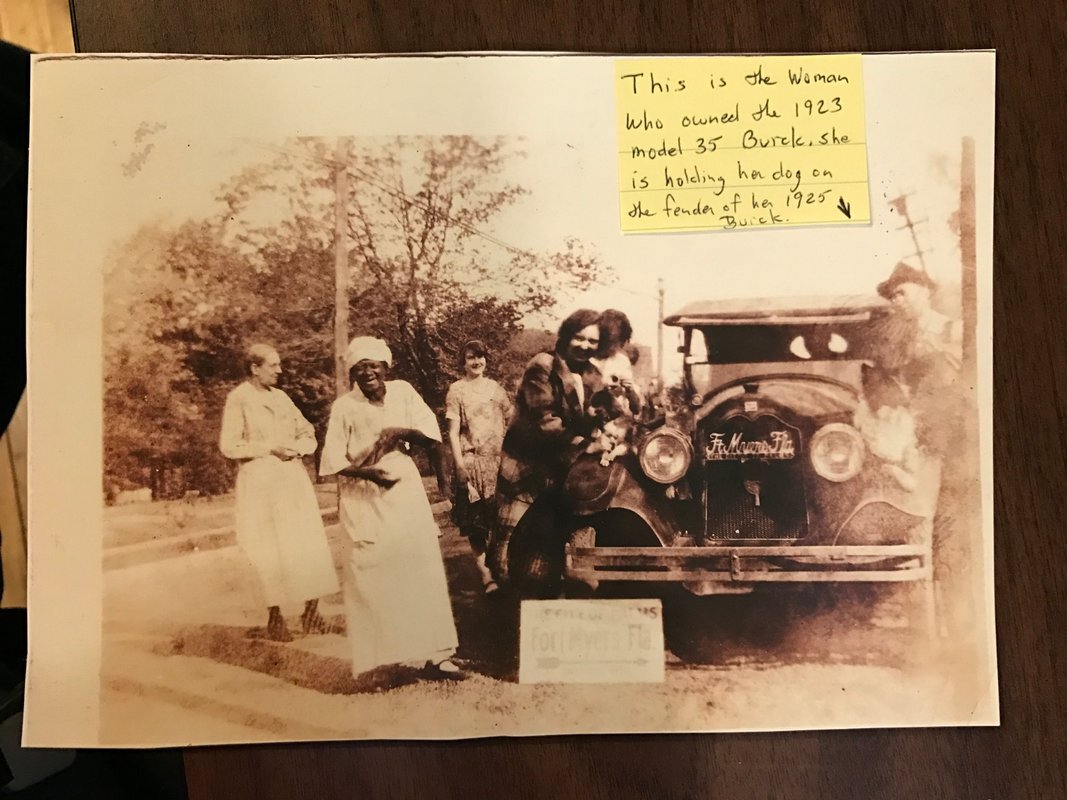 This is the Woman
Who owned the 1923
model 35 Buick. she
is holding her dog on
the fender of her 1925
Buick.
Ft. Myers. Fla
Fort Myers Fla.